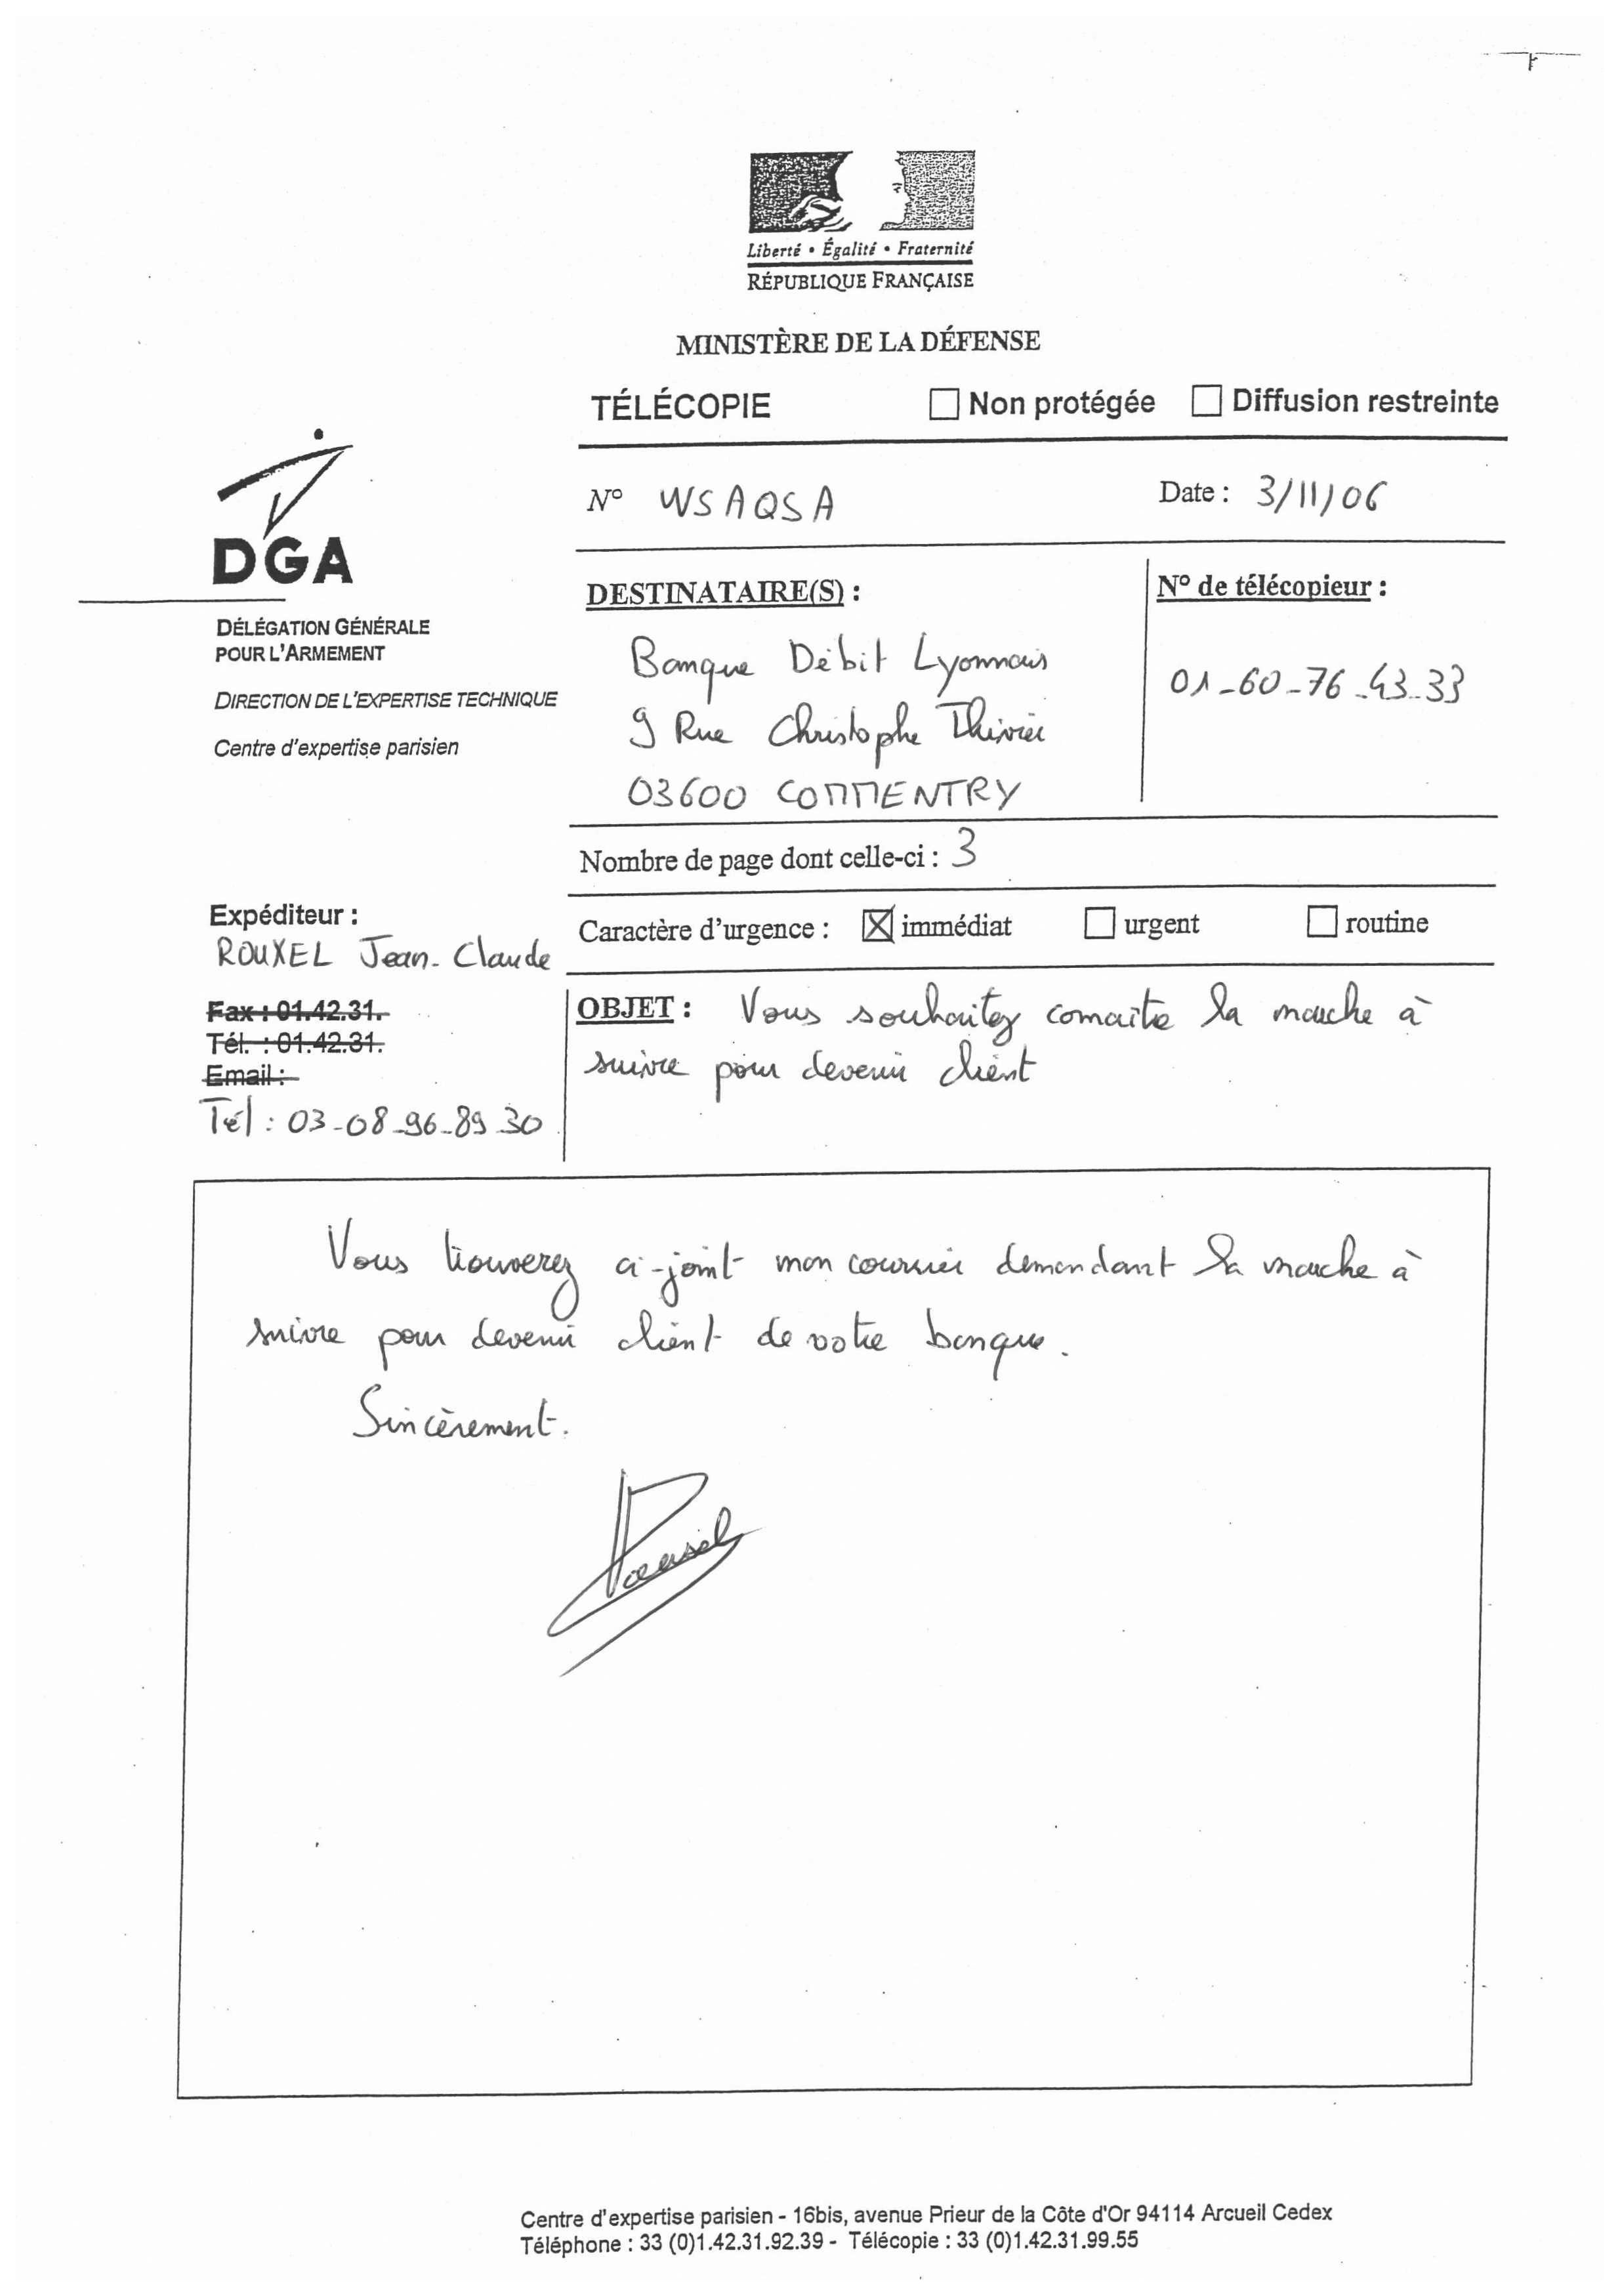 Liberté • Égalité • Fraternité
RÉPUBLIQUE FRANÇAISE
MINISTÈRE DE LA DÉFENSE
TÉLÉCOPIE ☐ Non protégée ☐ Diffusion restreinte
N° WSAQSA Date : 3/11/06
DGA
DÉLÉGATION GÉNÉRALE
POUR L'ARMEMENT
DIRECTION DE L'EXPERTISE TECHNIQUE
Centre d'expertise parisien
DESTINATAIRE(S) :
Banque Débit Lyonnais
9 Rue Christophe Thivrier
03600 COMMENTRY
N° de télécopieur :
01-60-76-43-33
Nombre de page dont celle-ci : 3
Expéditeur :
ROUXEL Jean-Claude
Caractère d'urgence : ☒ immédiat ☐ urgent ☐ routine
Fax : 01.42.31.
Tél. : 01.42.31.
Email :
Tél : 03-08-96-89-30
OBJET : Vous souhaitez connaitre la marche à
suivre pour devenir client
Vous trouverez ci-joint mon courrier demandant la marche à
suivre pour devenir client de votre banque.
Sincèrement.
Rouxel
Centre d'expertise parisien - 16bis, avenue Prieur de la Côte d'Or 94114 Arcueil Cedex
Téléphone : 33 (0)1.42.31.92.39 - Télécopie : 33 (0)1.42.31.99.55